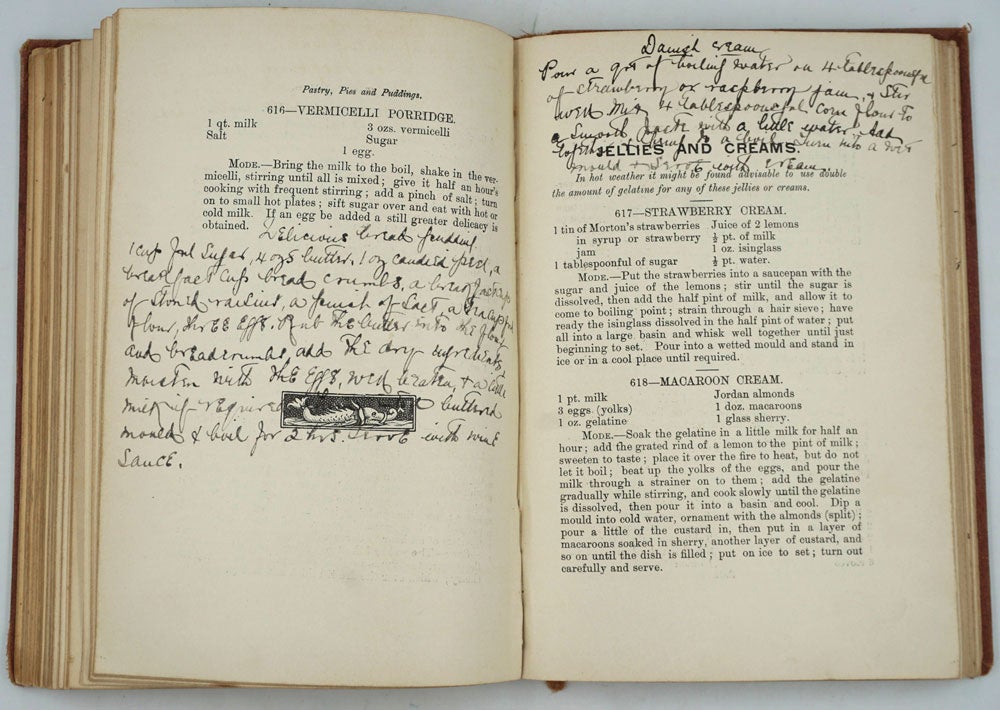 Pastry, Pies and Puddings.
616—VERMICELLI PORRIDGE.
1 qt. milk 3 ozs. vermicelli
Salt Sugar
1 egg.
MODE.—Bring the milk to the boil, shake in the ver-
micelli, stirring until all is mixed; give it half an hour's
cooking with frequent stirring; add a pinch of salt; turn
on to small hot plates; sift sugar over and eat with hot or
cold milk. If an egg be added a still greater delicacy is
obtained.
Delicious bread pudding
1 cup full sugar, 4 ozs butter, 1 oz candied peel, a
breakfast cup bread crumbs, a breakfast cup
of stoned raisins, a pinch of salt, a teacup
flour, three eggs. Rub the butter into the flour
and breadcrumbs, add the dry ingredients,
moisten with the eggs, well beaten, & a little
milk if required buttered
mould & boil for 2 hrs. Serve with wine
sauce.
Danish cream
Pour a qrt of boiling water on 4 tablespoonsful
of strawberry or raspberry jam, & stir
well mix 4 tablespoonsful corn flour to
a smooth paste with a little water. Add
to a boil. turn into a wet
mould & serve with cream.
JELLIES AND CREAMS.
In hot weather it might be found advisable to use double
the amount of gelatine for any of these jellies or creams.
617—STRAWBERRY CREAM.
1 tin of Morton's strawberries Juice of 2 lemons
in syrup or strawberry ½ pt. of milk
jam 1 oz. isinglass
1 tablespoonful of sugar ½ pt. water.
MODE.—Put the strawberries into a saucepan with the
sugar and juice of the lemons; stir until the sugar is
dissolved, then add the half pint of milk, and allow it to
come to boiling point; strain through a hair sieve; have
ready the isinglass dissolved in the half pint of water; put
all into a large basin and whisk well together until just
beginning to set. Pour into a wetted mould and stand in
ice or in a cool place until required.
618—MACAROON CREAM.
1 pt. milk Jordan almonds
3 eggs (yolks) 1 doz. macaroons
1 oz. gelatine 1 glass sherry.
MODE.—Soak the gelatine in a little milk for half an
hour; add the grated rind of a lemon to the pint of milk;
sweeten to taste; place it over the fire to heat, but do not
let it boil; beat up the yolks of the eggs, and pour the
milk through a strainer on to them; add the gelatine
gradually while stirring, and cook slowly until the gelatine
is dissolved, then pour it into a basin and cool. Dip a
mould into cold water, ornament with the almonds (split);
pour a little of the custard in, then put in a layer of
macaroons soaked in sherry, another layer of custard, and
so on until the dish is filled; put on ice to set; turn out
carefully and serve.